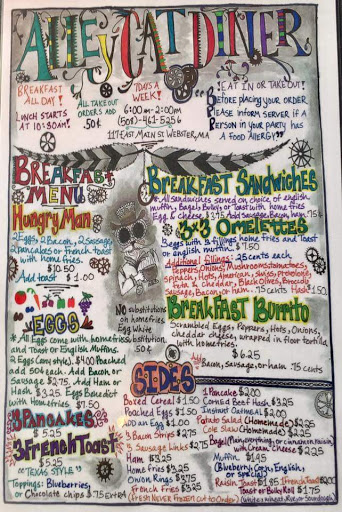 Alley Cat Diner
Breakfast
All Day!
Lunch starts
at 10:30AM!
All take out
orders add
50¢
7 days a
week!
6:00am-2:00pm
(508)-461-5256
117 East Main St Webster, MA
Eat in or Take out!
Before placing your order
please inform server if a
person in your party has
a food allergy"
Breakfast
Menu
Hungry Man
2 Eggs, 2 Bacon, 2 Sausage,
2 pancakes or French toast
with home fries.
$10.50
Add toast $1.00
Eggs
* All Eggs come with homefries
and Toast or English Muffins.
2 Eggs (any style). $4.00 Poached
add 50¢ each. Add Bacon or
Sausage $2.75. Add Ham or
Hash $3.25 Eggs Benedict
with Homefries
3 Pancakes
$5.25
3 French Toast
$5.25
"Texas Style"
Toppings: Blueberries,
or Chocolate chips $.75 extra
No substitutions
on homefries.
Egg White
Substitution
50¢
Breakfast Sandwiches
* All sandwiches served on choice of english
muffin, Bagel, Bulky or Toast with home fries
Egg & cheese $3.75 Add Sausage, Bacon, Ham .75¢
3x3 Omelettes
3 eggs with 3 fillings home fries and Toast
or english muffin. $7.50
Additional fillings: 25 cents each.
Peppers, Onions, Mushrooms, tomatoes,
spinach, Hots, American, Swiss, Provolone,
feta & cheddar, Black Olives, Broccoli
Sausage, Bacon, or ham .75 cents Hash 1.50
Breakfast Burrito
Scrambled Eggs, Peppers, Hots, Onions,
cheddar cheese, wrapped in flour tortilla
with homefries.
$6.25
Add
Bacon, Sausage, or ham .75 cents
Sides
Boxed Cereal $1.50
Poached Egg $1.50
Add an Egg $1.00
3 Bacon Strips $2.75
3 Sausage Links $2.75
Ham $3.25
Home fries $3.25
Onion Rings $3.75
French fries $3.25
(Fresh Never Frozen Cut to Order)
1 Pancake $2.00
Corned Beef Hash $3.25
Instant Oatmeal $2.00
Potato Salad (Homemade) $2.25
Cole Slaw (Homemade) $2.25
Bagel (Plain, everything, or cinnamon raisin)
with Cream Cheese $2.25
Muffin $1.95
(Blueberry, Corn, English,
or special)
Raisin Toast $1.95 1 French Toast $2.00
Toast or Bulky Roll $1.75
(White, wheat, Rye, or Sourdough)